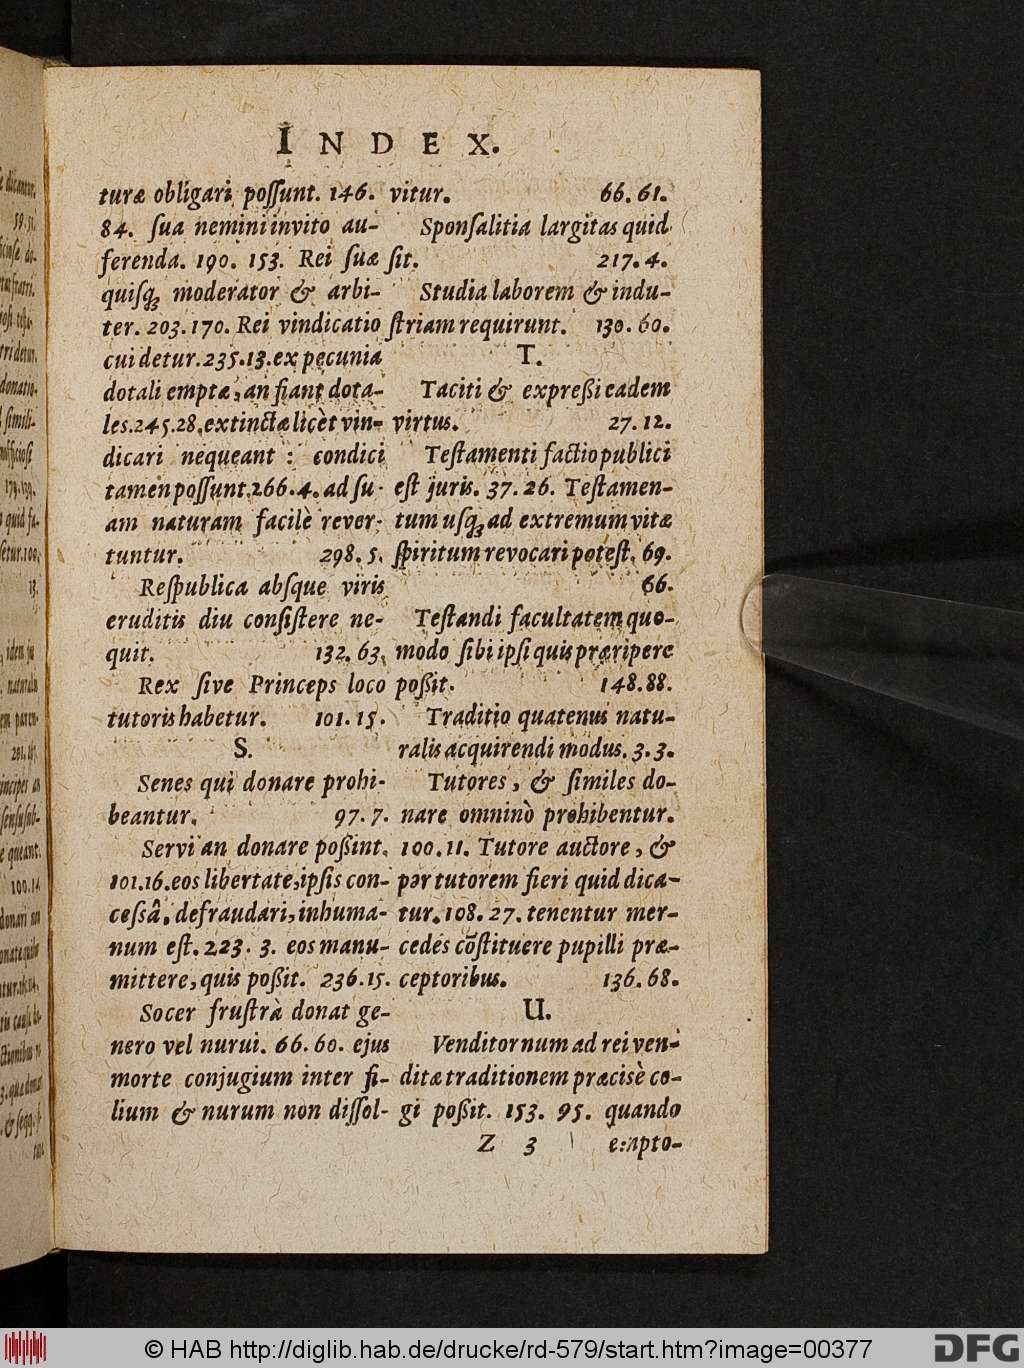 INDEX.
turæ obligari poſſunt. 146.
84. ſua nemini invito au-
ferenda. 190. 153. Rei ſuæ
quiſq; moderator & arbi-
ter. 203. 170. Rei vindicatio
cui detur. 235. 13. ex pecunia
dotali emptæ, an fiant dota-
les. 245. 28. extinctæ licèt vin-
dicari nequeant : condici
tamen poſſunt. 266. 4. ad ſu-
am naturam facilè rever-
tuntur. 298. 5.
Reſpublica abſque viris
eruditis diu conſiſtere ne-
quit. 132. 63.
Rex ſive Princeps loco
tutoris habetur. 101. 15.
S.
Senes qui donare prohi-
beantur. 97. 7.
Servi an donare poßint.
101. 16. eos libertate, ipſis con-
ceſsâ, defraudari, inhuma-
num eſt. 223. 3. eos manu-
mittere, quis poßit. 236. 15.
Socer fruſtrà donat ge-
nero vel nurui. 66. 60. ejus
morte conjugium inter fi-
lium & nurum non diſſol-
vitur. 66. 61.
Sponſalitia largitas quid
ſit. 217. 4.
Studia laborem & indu-
ſtriam requirunt. 130. 60.
T.
Taciti & expreßi eadem
virtus. 27. 12.
Teſtamenti factio publici
eſt juris. 37. 26. Teſtamen-
tum uſq; ad extremum vitæ
ſpiritum revocari poteſt. 69.
66.
Teſtandi facultatem quo-
modo ſibi ipſi quis præripere
poßit. 148. 88.
Traditio quatenus natu-
ralis acquirendi modus. 3. 3.
Tutores, & ſimiles do-
nare omninò prohibentur.
100. 11. Tutore auctore, &
per tutorem fieri quid dica-
tur. 108. 27. tenentur mer-
cedes cõſtituere pupilli præ-
ceptoribus. 136. 68.
U.
Venditor num ad rei ven-
ditæ traditionem præcisè co-
gi poßit. 153. 95. quando
Z 3 empto-
© HAB http://diglib.hab.de/drucke/rd-579/start.htm?image=00377
DFG